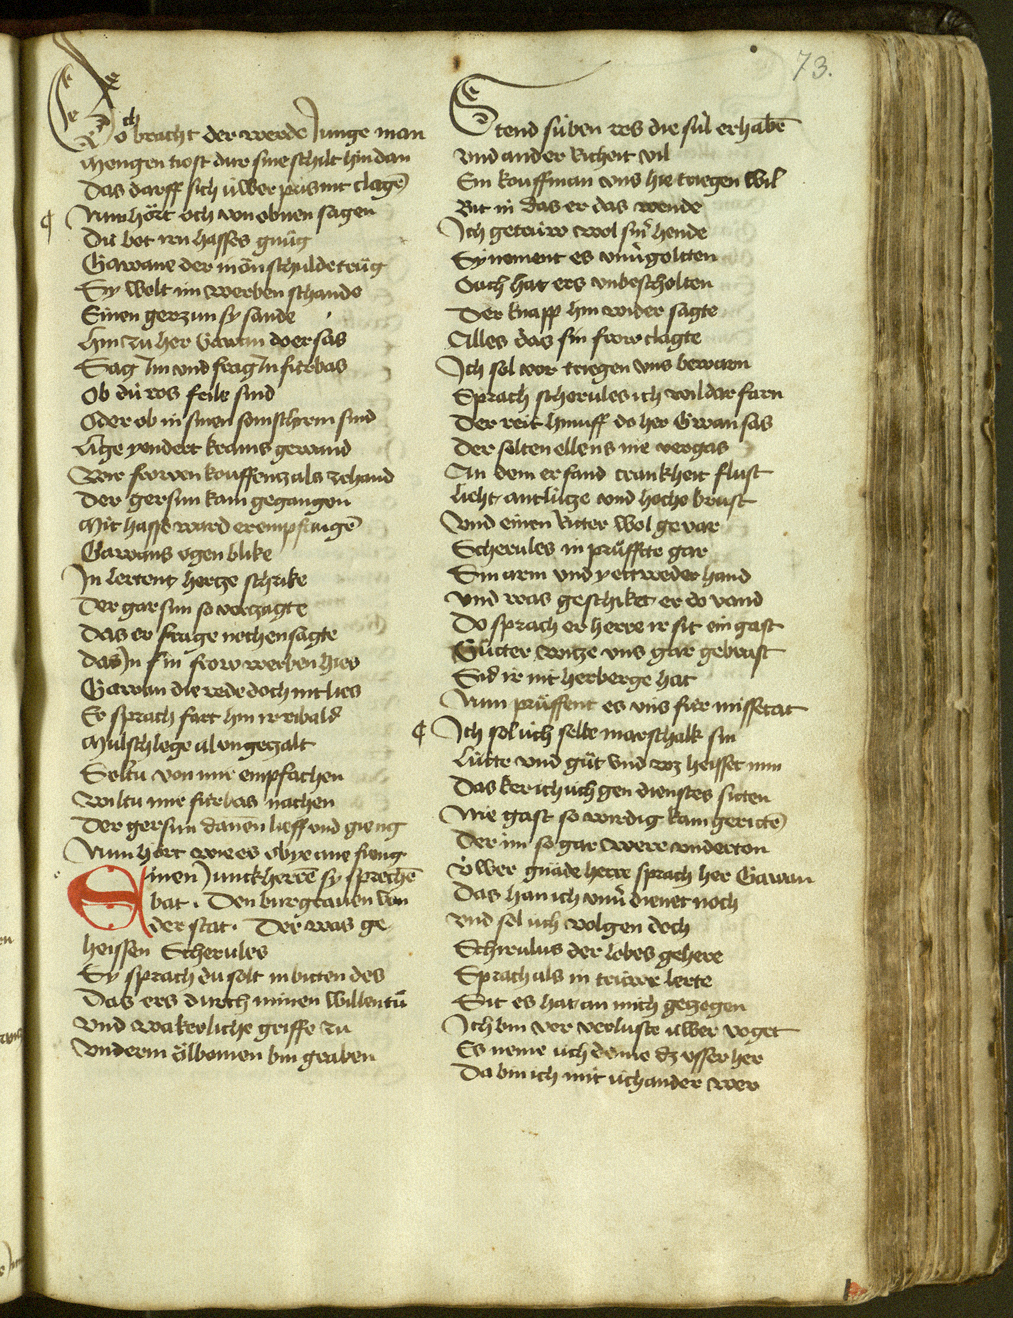 73.
Doch bracht der werde Junge man
Mengen tiost dur sine schilt hin dan
Das darff sich úwer pris nit clagē
Nun hört och von obyen sagen
Dú bot irn hasses gnůg
Gawane der in ön schulde trůg
Sy wolt im werben schande
Einen gerzun sy sande
Hin zu her Gawan do er sas
Sag Im und frag In fúrbas
Ob dú ros feile sind
Oder ob in sinen somschrin sind
Lige yendert krams gewand
Wir frowen kouffentz als zehand
Der gersun kam gegangen
Mit hasse ward er empfangē
Gawans ogen blike
In lertent hertze schrike
Der garsun so verzagte
Das er frage noch en sagte
Das In sin frow werben hies
Gawan die rede doch nit lies
Er sprach fart hin ir ribald
Mulschlege al ungezalt
Soltu von mir empfachen
Wiltu mir fúrbas nachen
Der gersun dannen lieff und gieng
Nun hört wie es obye ane fieng
Einen Junckherrē sy sprechē
bat. Den burgrauen von
der stat. Der was ge
heissen Scherules
Sy sprach du solt in bitten des
Das ers durch minen willen tů
Und wakerliche griffe zu
Underm ölbomen bin graben
Stend súben ros die súl er habē
Und ander richeit vil
Ein kouffman wns hie triegen wil
Bit in das er das wende
Ich getrúw wol sinr hende
Sy nement es unvergoltten
Och hat ers unbescholten
Der knapp hin wider sagte
Alles das sin frow clagte
Ich sol vor triegen uns bewarn
Sprach scherules ich wil dar farn
Der reit hinuff do her Gwan sas
Der selten ellens nie vergas
An dem er fand crankheit flust
Licht antlútze und hoche brust
Und einen ritter wol gevar
Scherules in prúffte gar
Sin arm und yettweder hand
Und was geschiket er do vand
Do sprach er herre ir sit ein gast
Gůtter witze uns gar gebrast
Sid ir nit herberge hat
Nun prúffent es úns fúr missetat
Ich sol úch selbe marschalk sin
Lútte und gůt und wz heisset min
Das ker ich úch gen dienstes sitten
Nie gast so wirdig kam geritē
Der im so gar were underton
Úwer gnade herre sprach her Gawan
Das han ich unverdienet noch
Und sol úch volgen doch
Schirulus der lobes gehere
Sprach als in trúwe lerte
Sit es hat an mich gezogen
Ich bin vor verluste úwer voget
Es neme úch denne dz usser her
Da bin ich mit úch an der wer